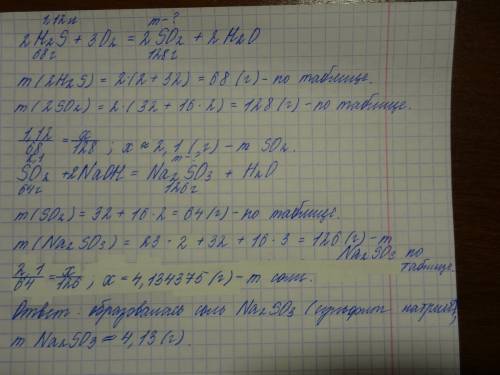 1,12л m-?
2H₂S + 3O₂ = 2SO₂ + 2H₂O
68г 128г
m(2H₂S) = 2(2+32) = 68(г) - по таблице.
m(2SO₂) = 2·(32+16·2) = 128(г) - по таблице.
1,12/68 = x/128; x ≈ 2,1(г) - m SO₂.
2,1 m-?
SO₂ + 2NaOH = Na₂SO₃ + H₂O
64г 126г
m(SO₂) = 32+16·2 = 64(г) - по таблице.
m(Na₂SO₃) = 23·2+32+16·3 = 126(г) - m
Na₂SO₃ по
таблице.
2,1/64 = x/126; x = 4,134375(г) - m соли.
Ответ: образовалась соль Na₂SO₃ (сульфит натрия),
m Na₂SO₃ = 4,13(г).